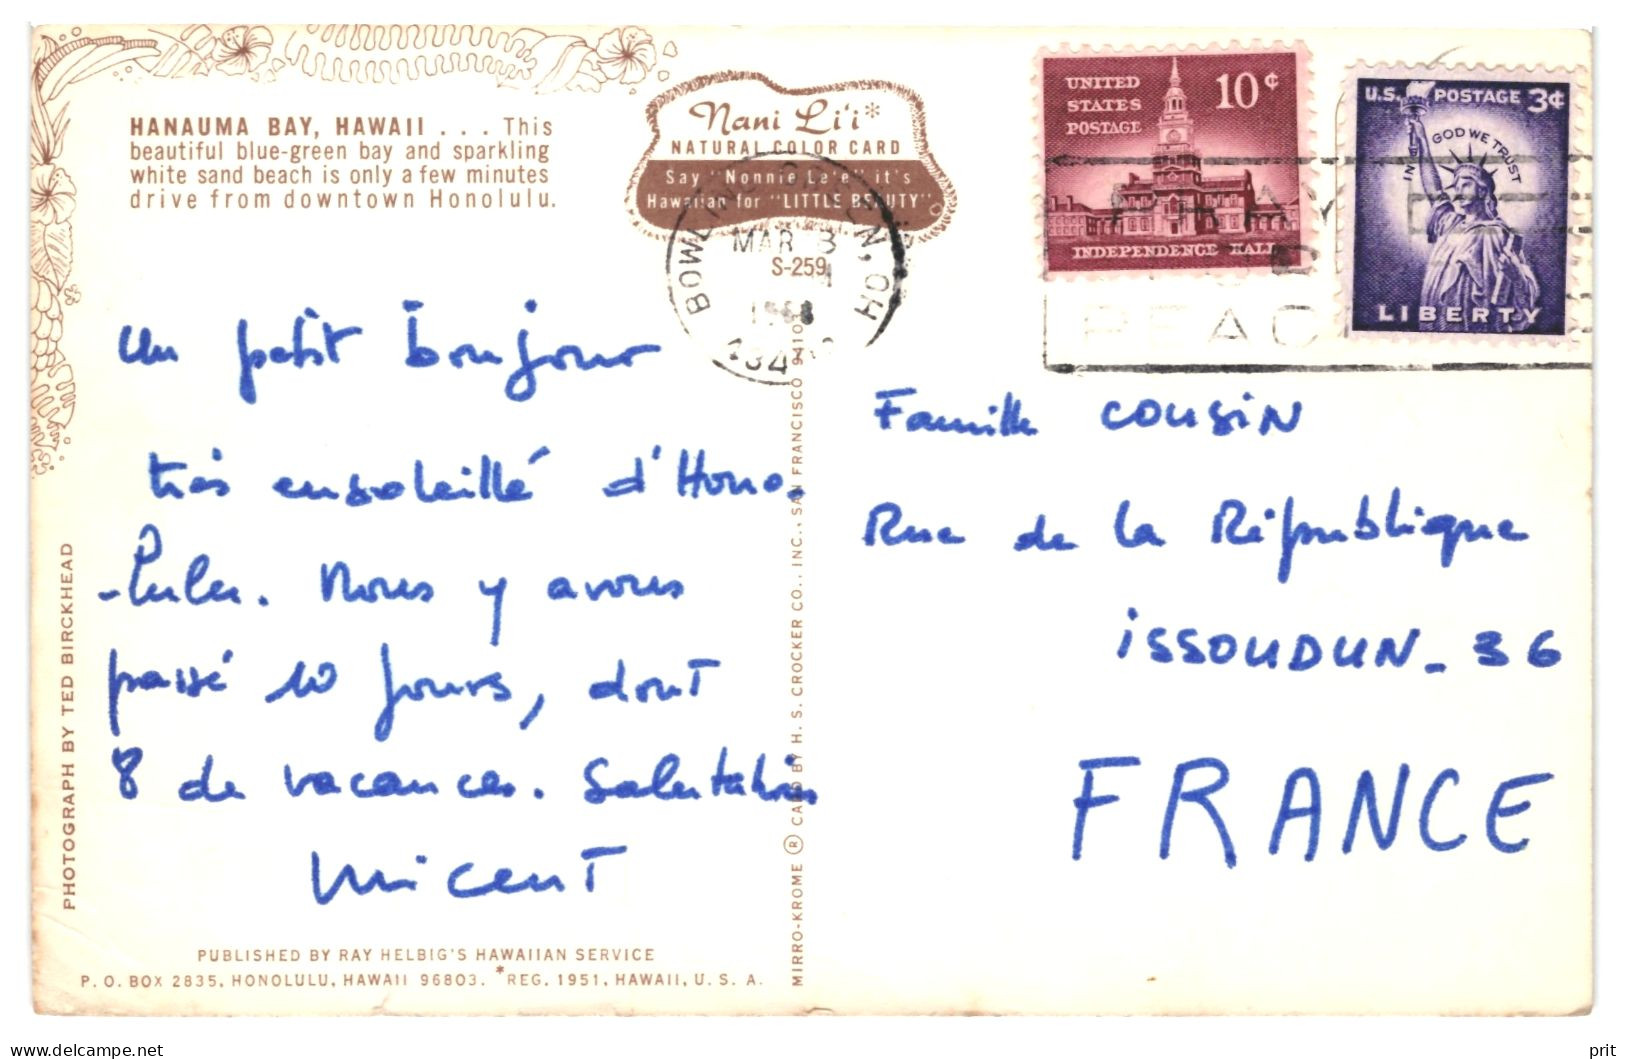 HANAUMA BAY, HAWAII . . . This
beautiful blue-green bay and sparkling
white sand beach is only a few minutes
drive from downtown Honolulu.
Nani Li'i*
NATURAL COLOR CARD
Say "Nonnie Le'e" it's
Hawaiian for "LITTLE BEAUTY"
S-259
BOWLING GREEN, OH
MAR 8
UNITED
STATES
POSTAGE
10¢
INDEPENDENCE HALL
U.S. POSTAGE 3¢
IN GOD WE TRUST
LIBERTY
PRAY
PEAC
Un petit bonjour
très ensoleillé d'Hono-
-lulu. Nous y avons
passé 10 jours, dont
8 de vacances. Salutations
Vincent
Famille COUSIN
Rue de la République
ISSOUDUN - 36
FRANCE
PHOTOGRAPH BY TED BIRCKHEAD
MIRRO-KROME ® CARD BY H. S. CROCKER CO., INC., SAN FRANCISCO
PUBLISHED BY RAY HELBIG'S HAWAIIAN SERVICE
P. O. BOX 2835, HONOLULU, HAWAII 96803. *REG. 1951, HAWAII, U. S. A.
www.delcampe.net
prit